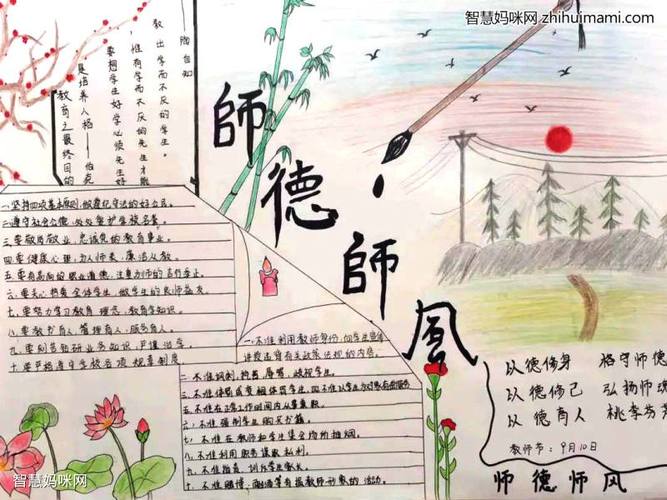 智慧妈咪网 zhihuimami.com
——陶自知
教出学而不厌的学生。
惟有学而不厌的先生才能
要想学生好学必须先生好
是培养人格——伯克
教育之最终目的
師德師風
一.坚持四项基本原则,做遵纪守法的好公民。
二.遵守社会公德,处处维护学校名誉。
三.要敬岗敬业,忠诚党的教育事业。
四.要健康心理,为人师表,廉洁从教。
五.要有高尚的职业道德,注重为师的言行举止。
六.要关心热爱全体学生,做学生的良师益友。
七.要努力学习教育理念,教育学知识。
八.要教书育人,管理育人,服务育人。
九.要刻苦钻研业务知识,严谨治学。
十.要严格遵守学校各项规章制度
一.不准利用教师身份,向学生宣传
违背国家有关政策法规的内容。
二.不准讽刺,挖苦,辱骂,歧视学生。
三.不准体罚或变相体罚学生,
五.不准强制学生购买书籍。
六.不准在教师和学生集会场所抽烟。
七.不准利用职务谋取私利。
八.不准指责,训斥学生家长。
十.不准赌博,
以德修身 恪守师德
以德修己 弘扬师魂
以德育人 桃李芬芳
教师节:9月10日
师德师风
智慧妈咪网
智慧妈咪网